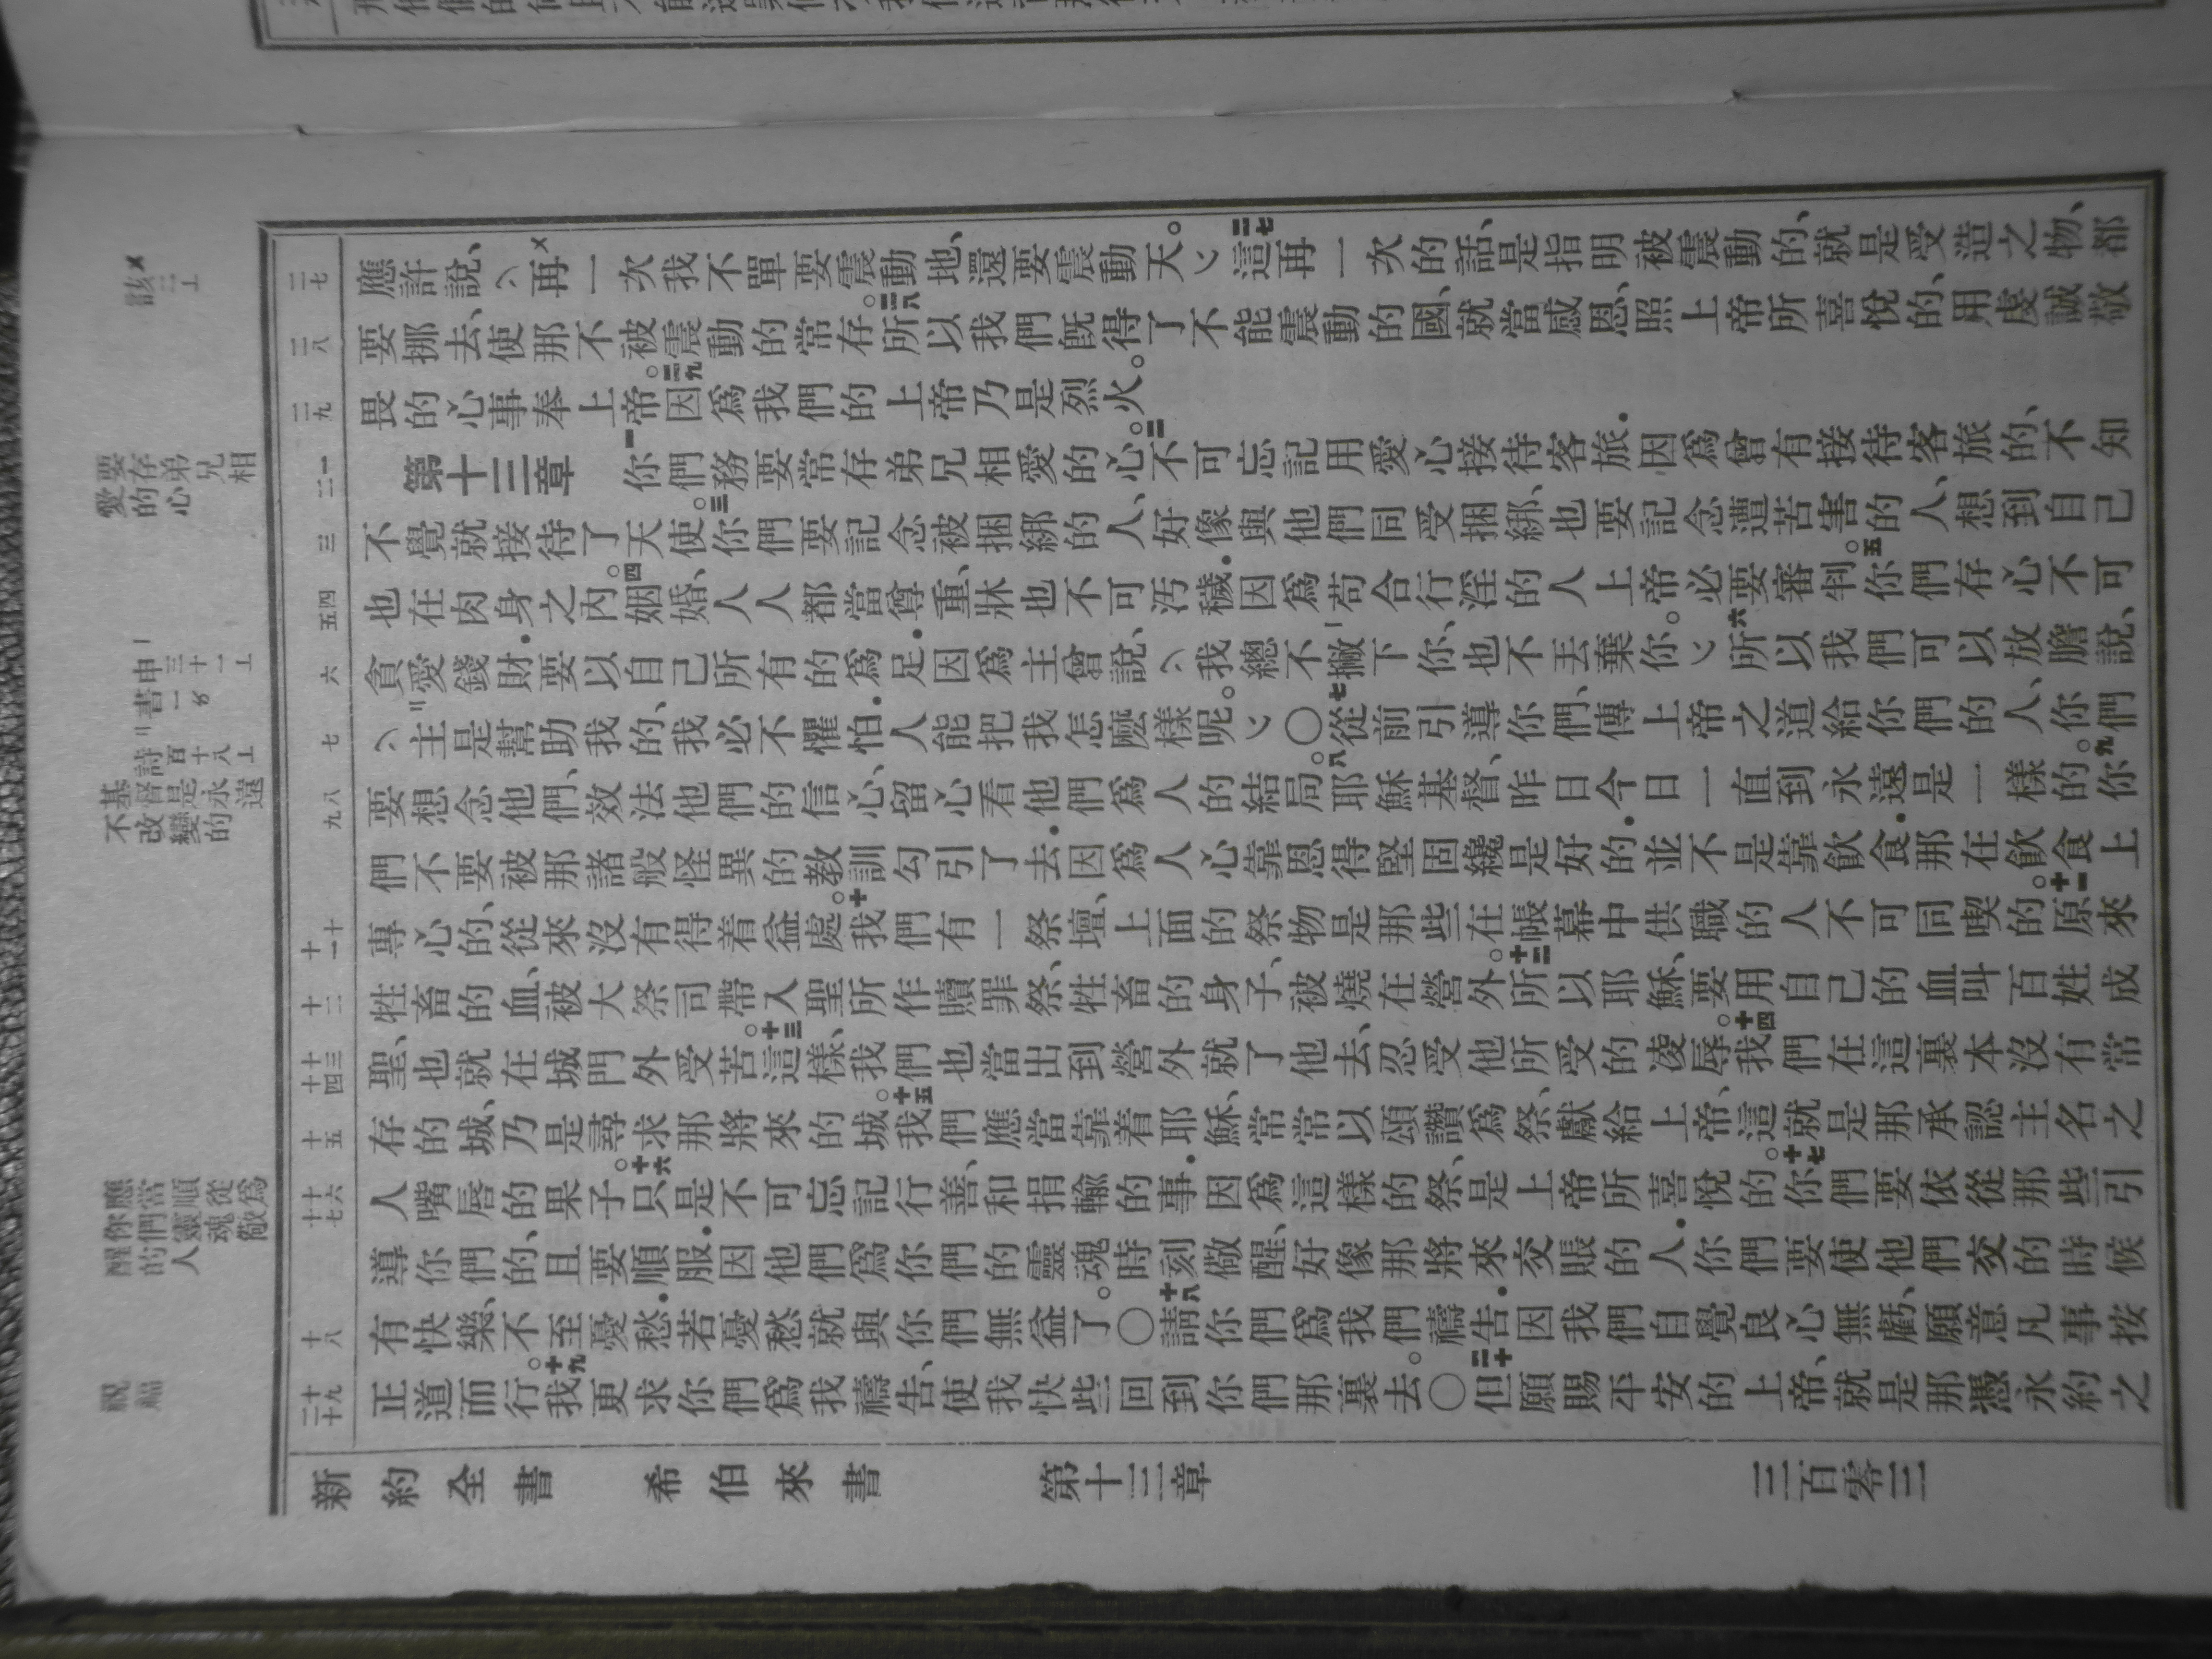 應許說、再一次我不單要震動地、還要震動天。二七這再一次的話、是指明被震動的、就是受造之物、都
要挪去、使那不被震動的常存。二八所以我們既得了不能震動的國、就當感恩、照上帝所喜悅的、用虔誠敬
畏的心事奉上帝。二九因爲我們的上帝乃是烈火。
第十三章 一你們務要常存弟兄相愛的心。二不可忘記用愛心接待客旅．因爲曾有接待客旅的、不知
不覺就接待了天使。三你們要記念被捆綁的人、好像與他們同受捆綁、也要記念遭苦害的人、想到自己
也在肉身之內。四婚姻、人人都當尊重、牀也不可汚穢．因爲苟合行淫的人上帝必要審判。五你們存心不可
貪愛錢財．要以自己所有的爲足．因爲主曾說、我總不撇下你、也不丟棄你。六所以我們可以放膽說、
主是幫助我的、我必不懼怕．人能把我怎麼樣呢。〇七從前引導你們、傳上帝之道給你們的人、你們
要想念他們、效法他們的信心、留心看他們爲人的結局。八耶穌基督、昨日今日一直到永遠是一樣的。九你
們不要被那諸般怪異的教訓勾引了去．因爲人心靠恩得堅固纔是好的．並不是靠飲食．那在飲食上
專心的、從來沒有得着益處。十我們有一祭壇、上面的祭物是那些在帳幕中供職的人不可同喫的。十一原來
牲畜的血、被大祭司帶入聖所作贖罪祭、牲畜的身子、被燒在營外。十二所以耶穌、要用自己的血叫百姓成
聖、也就在城門外受苦。十三這樣、我們也當出到營外就了他去、忍受他所受的凌辱。十四我們在這裏本沒有常
存的城、乃是尋求那將來的城。十五我們應當靠着耶穌、常常以頌讚爲祭、獻給上帝、這就是那承認主名之
人嘴唇的果子。十六只是不可忘記行善、和捐輸的事．因爲這樣的祭、是上帝所喜悅的。十七你們要依從那些引
導你們的、且要順服．因他們爲你們的靈魂時刻儆醒、好像那將來交賬的人．你們要使他們交的時候
有快樂、不至憂愁．若憂愁就與你們無益了。〇十八請你們爲我們禱告．因我們自覺良心無虧、願意凡事按
正道而行。十九我更求你們爲我禱告、使我快些回到你們那裏去。〇二十但願賜平安的上帝、就是那憑永約之
新約全書 希伯來書 第十三章 三百零三
要存弟兄相
愛的心
基督是永遠
不改變的
應當順從爲
你們靈魂儆
醒的人
祝福